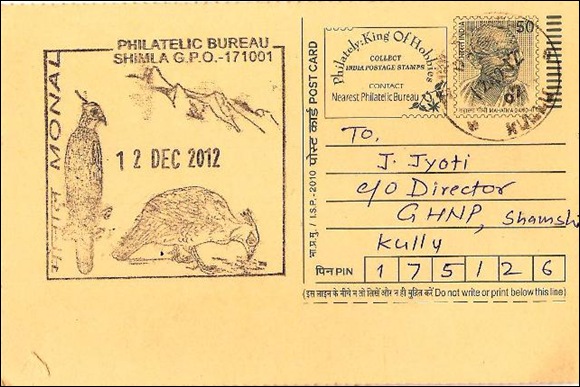 PHILATELIC BUREAU
SHIMLA G.P.O.-171001
मोनाल MONAL
12 DEC 2012
भा.प्र.मु./I.S.P.-2010 पोस्ट कार्ड POST CARD
Philately: King Of Hobbies
COLLECT
INDIA POSTAGE STAMPS
CONTACT
Nearest Philatelic Bureau
50
महात्मा गाँधी MAHATMA GANDHI
To,
J. Jyoti
c/o Director
GHNP, Shamshi
Kully
पिन PIN 175126
(इस लाइन के नीचे न तो लिखें और न ही मुद्रित करें Do not write or print below this line)